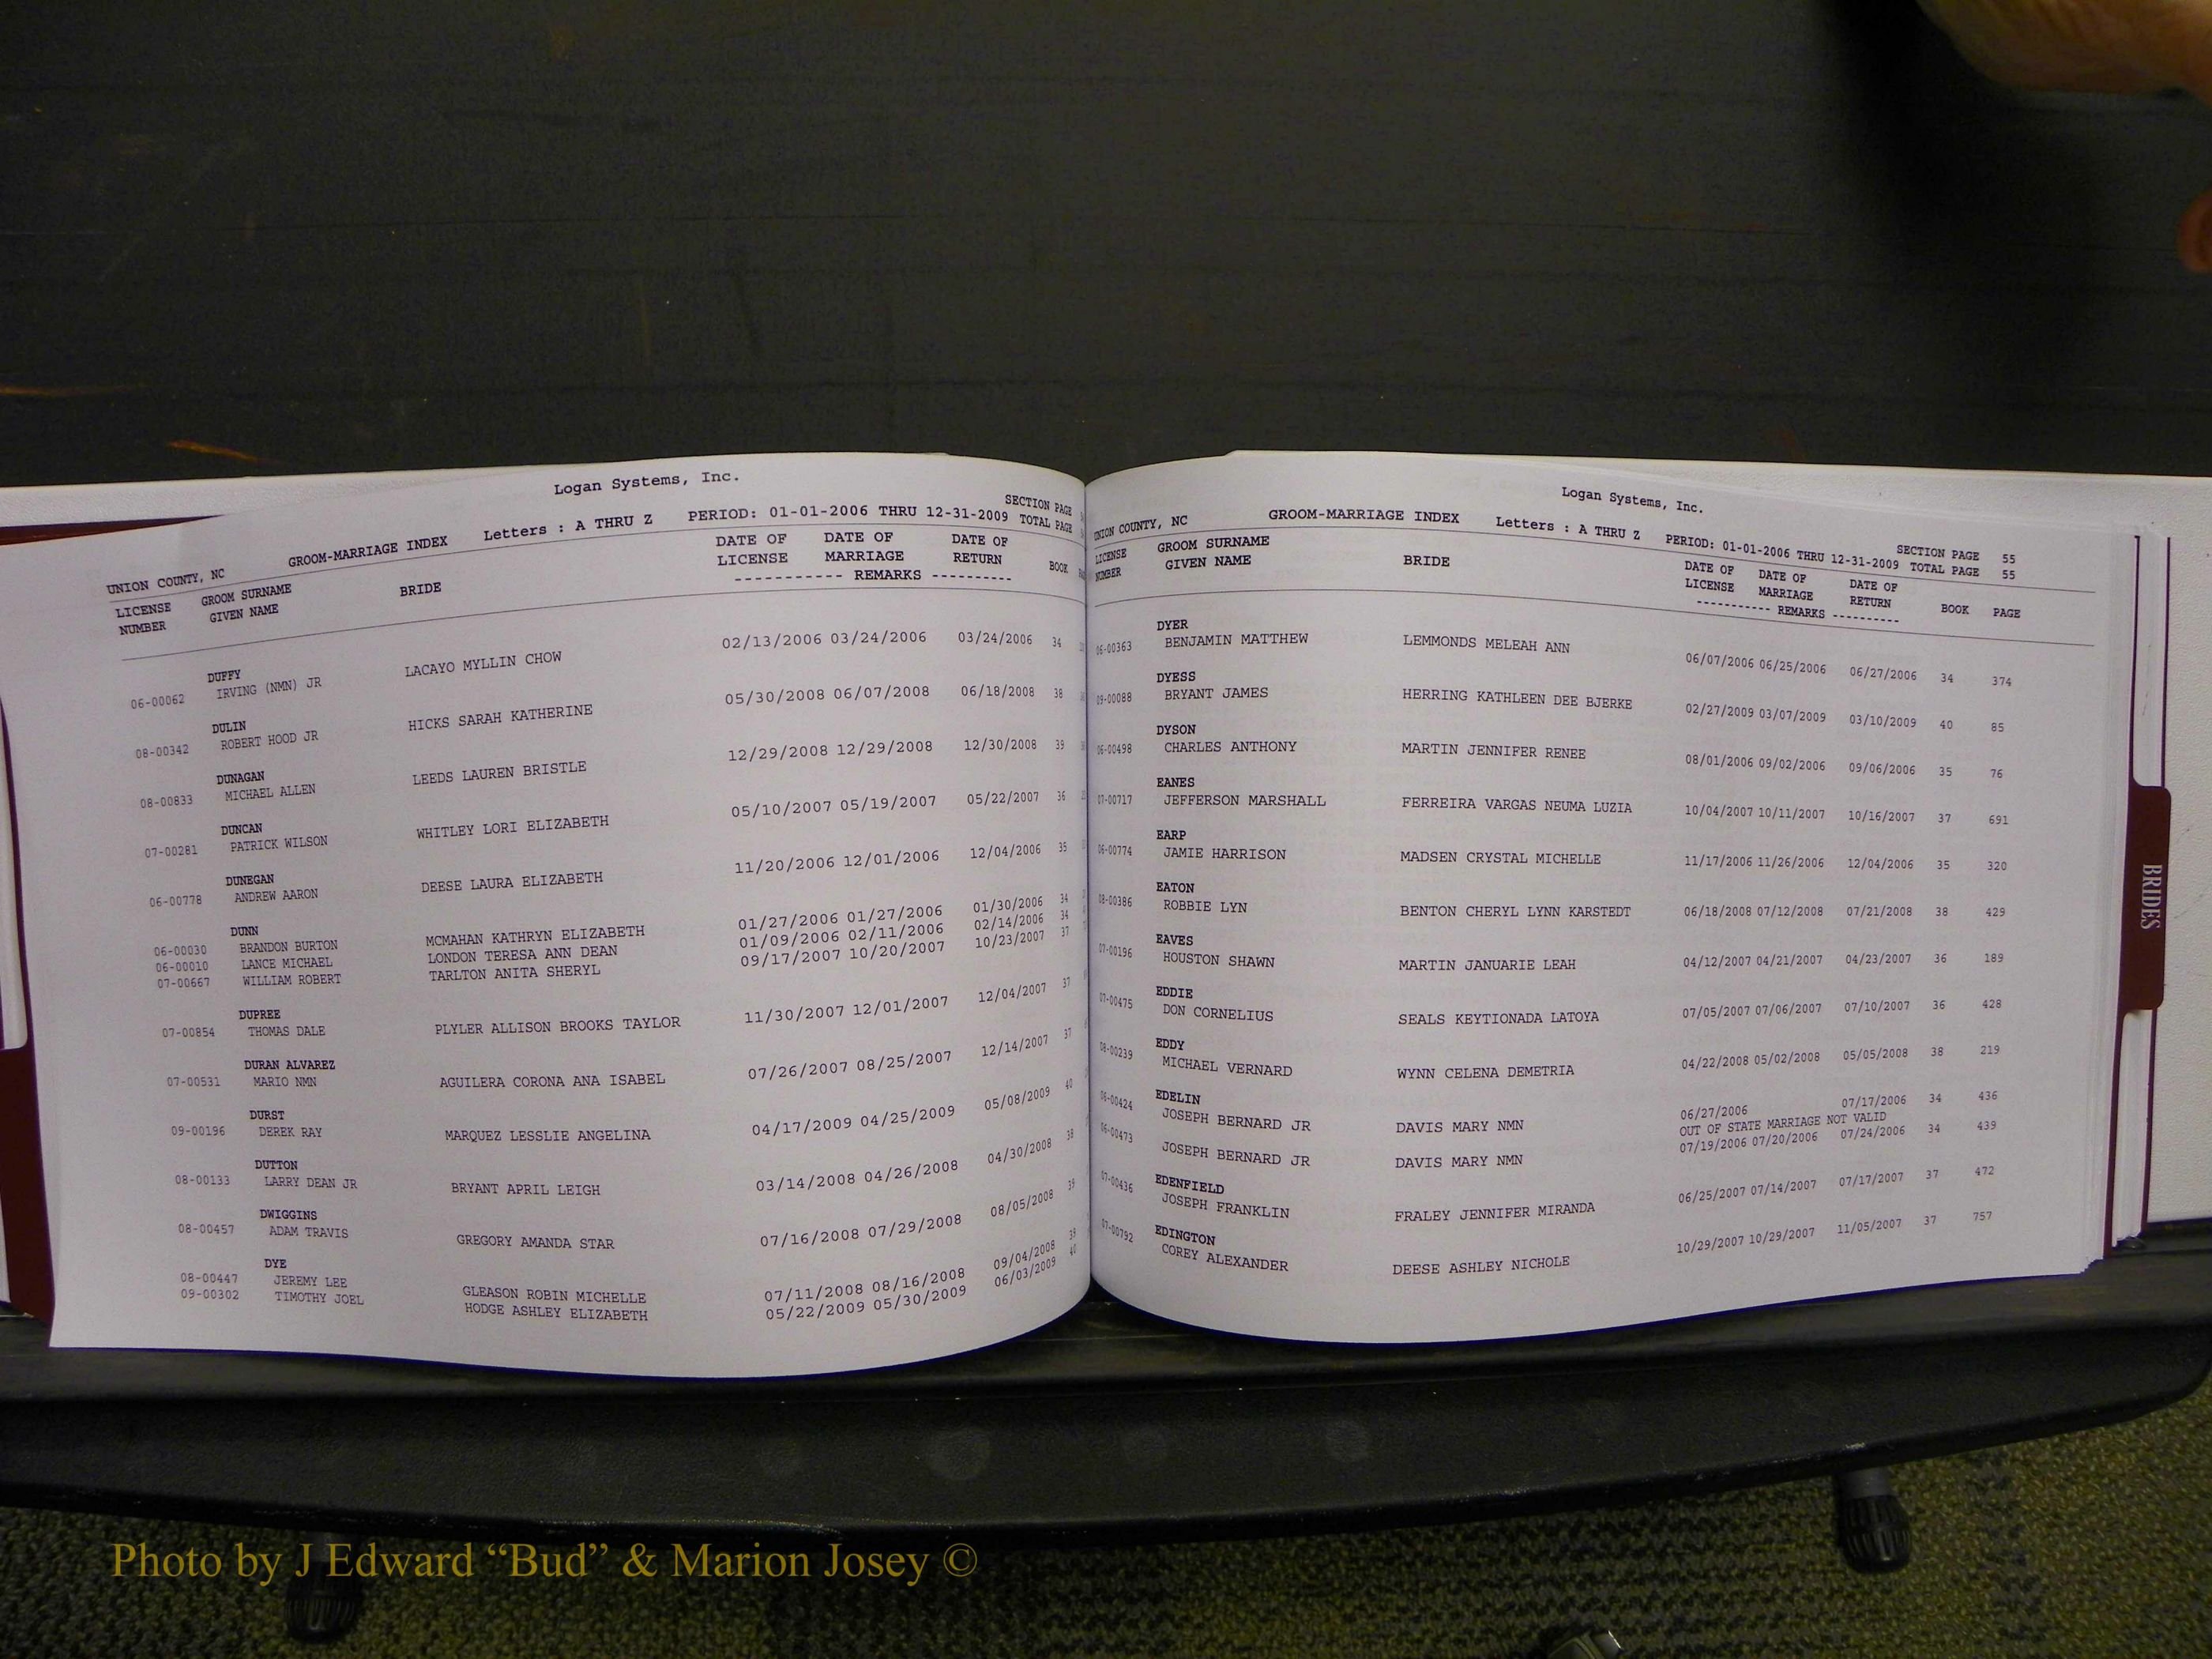 Logan Systems, Inc.
SECTION PAGE
UNION COUNTY, NC GROOM-MARRIAGE INDEX Letters : A THRU Z PERIOD: 01-01-2006 THRU 12-31-2009 TOTAL PAGE
LICENSE GROOM SURNAME BRIDE DATE OF DATE OF DATE OF BOOK
NUMBER GIVEN NAME LICENSE MARRIAGE RETURN
----------- REMARKS ----------
DUFFY
06-00062 IRVING (NMN) JR LACAYO MYLLIN CHOW 02/13/2006 03/24/2006 03/24/2006 34
DULIN
08-00342 ROBERT HOOD JR HICKS SARAH KATHERINE 05/30/2008 06/07/2008 06/18/2008 38
DUNAGAN
08-00833 MICHAEL ALLEN LEEDS LAUREN BRISTLE 12/29/2008 12/29/2008 12/30/2008 39
DUNCAN
07-00281 PATRICK WILSON WHITLEY LORI ELIZABETH 05/10/2007 05/19/2007 05/22/2007 36
DUNEGAN
06-00778 ANDREW AARON DEESE LAURA ELIZABETH 11/20/2006 12/01/2006 12/04/2006 35
DUNN
06-00030 BRANDON BURTON MCMAHAN KATHRYN ELIZABETH 01/27/2006 01/27/2006 01/30/2006 34
06-00010 LANCE MICHAEL LONDON TERESA ANN DEAN 01/09/2006 02/11/2006 02/14/2006 34
07-00667 WILLIAM ROBERT TARLTON ANITA SHERYL 09/17/2007 10/20/2007 10/23/2007 37
DUPREE
07-00854 THOMAS DALE PLYLER ALLISON BROOKS TAYLOR 11/30/2007 12/01/2007 12/04/2007 37
DURAN ALVAREZ
07-00531 MARIO NMN AGUILERA CORONA ANA ISABEL 07/26/2007 08/25/2007 12/14/2007 37
DURST
09-00196 DEREK RAY MARQUEZ LESSLIE ANGELINA 04/17/2009 04/25/2009 05/08/2009 40
DUTTON
08-00133 LARRY DEAN JR BRYANT APRIL LEIGH 03/14/2008 04/26/2008 04/30/2008 38
DWIGGINS
08-00457 ADAM TRAVIS GREGORY AMANDA STAR 07/16/2008 07/29/2008 08/05/2008 39
DYE
08-00447 JEREMY LEE GLEASON ROBIN MICHELLE 07/11/2008 08/16/2008 09/04/2008 39
09-00302 TIMOTHY JOEL HODGE ASHLEY ELIZABETH 05/22/2009 05/30/2009 06/03/2009 40
Logan Systems, Inc.
SECTION PAGE 55
UNION COUNTY, NC GROOM-MARRIAGE INDEX Letters : A THRU Z PERIOD: 01-01-2006 THRU 12-31-2009 TOTAL PAGE 55
LICENSE GROOM SURNAME BRIDE DATE OF DATE OF DATE OF BOOK PAGE
NUMBER GIVEN NAME LICENSE MARRIAGE RETURN
----------- REMARKS ----------
DYER
06-00363 BENJAMIN MATTHEW LEMMONDS MELEAH ANN 06/07/2006 06/25/2006 06/27/2006 34 374
DYESS
09-00088 BRYANT JAMES HERRING KATHLEEN DEE BJERKE 02/27/2009 03/07/2009 03/10/2009 40 85
DYSON
06-00498 CHARLES ANTHONY MARTIN JENNIFER RENEE 08/01/2006 09/02/2006 09/06/2006 35 76
EANES
07-00717 JEFFERSON MARSHALL FERREIRA VARGAS NEUMA LUZIA 10/04/2007 10/11/2007 10/16/2007 37 691
EARP
06-00774 JAMIE HARRISON MADSEN CRYSTAL MICHELLE 11/17/2006 11/26/2006 12/04/2006 35 320
EATON
08-00386 ROBBIE LYN BENTON CHERYL LYNN KARSTEDT 06/18/2008 07/12/2008 07/21/2008 38 429
EAVES
07-00196 HOUSTON SHAWN MARTIN JANUARIE LEAH 04/12/2007 04/21/2007 04/23/2007 36 189
EDDIE
07-00475 DON CORNELIUS SEALS KEYTIONADA LATOYA 07/05/2007 07/06/2007 07/10/2007 36 428
EDDY
08-00239 MICHAEL VERNARD WYNN CELENA DEMETRIA 04/22/2008 05/02/2008 05/05/2008 38 219
EDELIN
06-00424 JOSEPH BERNARD JR DAVIS MARY NMN 06/27/2006 07/17/2006 34 436
OUT OF STATE MARRIAGE NOT VALID
06-00473 JOSEPH BERNARD JR DAVIS MARY NMN 07/19/2006 07/20/2006 07/24/2006 34 439
EDENFIELD
07-00436 JOSEPH FRANKLIN FRALEY JENNIFER MIRANDA 06/25/2007 07/14/2007 07/17/2007 37 472
EDINGTON
07-00792 COREY ALEXANDER DEESE ASHLEY NICHOLE 10/29/2007 10/29/2007 11/05/2007 37 757
BRIDES
Photo by J Edward “Bud” & Marion Josey ©